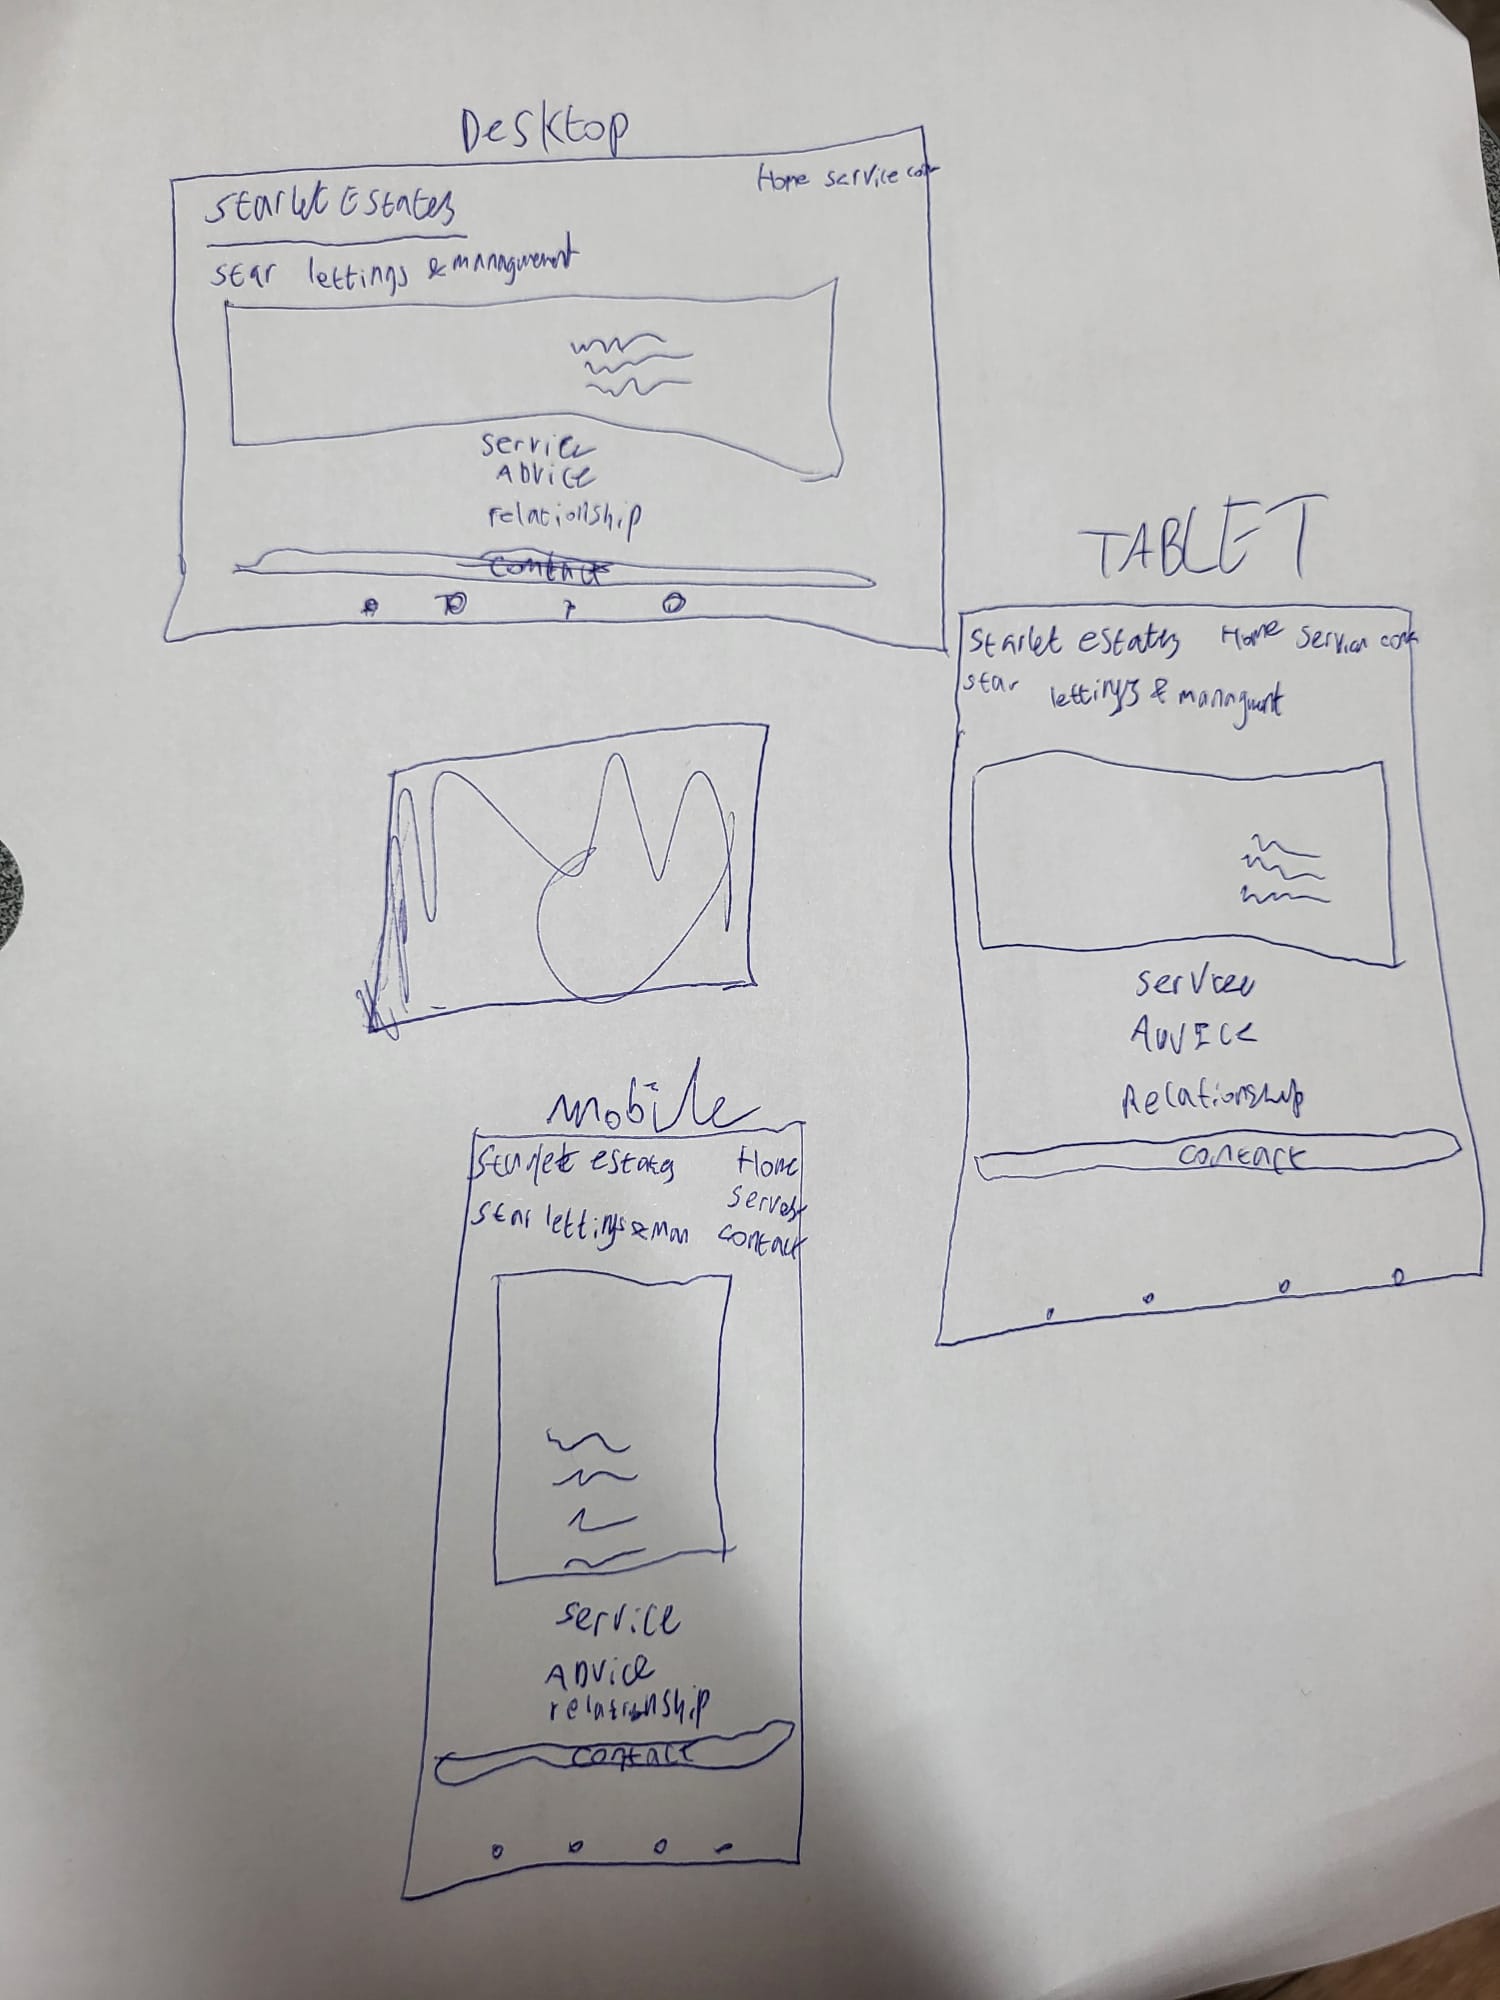 Desktop
Starlet Estates
Home service con
Star lettings & managment
service
ADVICE
relationship
contact
TABLET
Starlet estates Home Service con
star lettings & managment
Service
ADVICE
Relationship
contact
mobile
Starlet estates Home
Service
Star lettings & man contact
service
ADVICE
relationship
contact